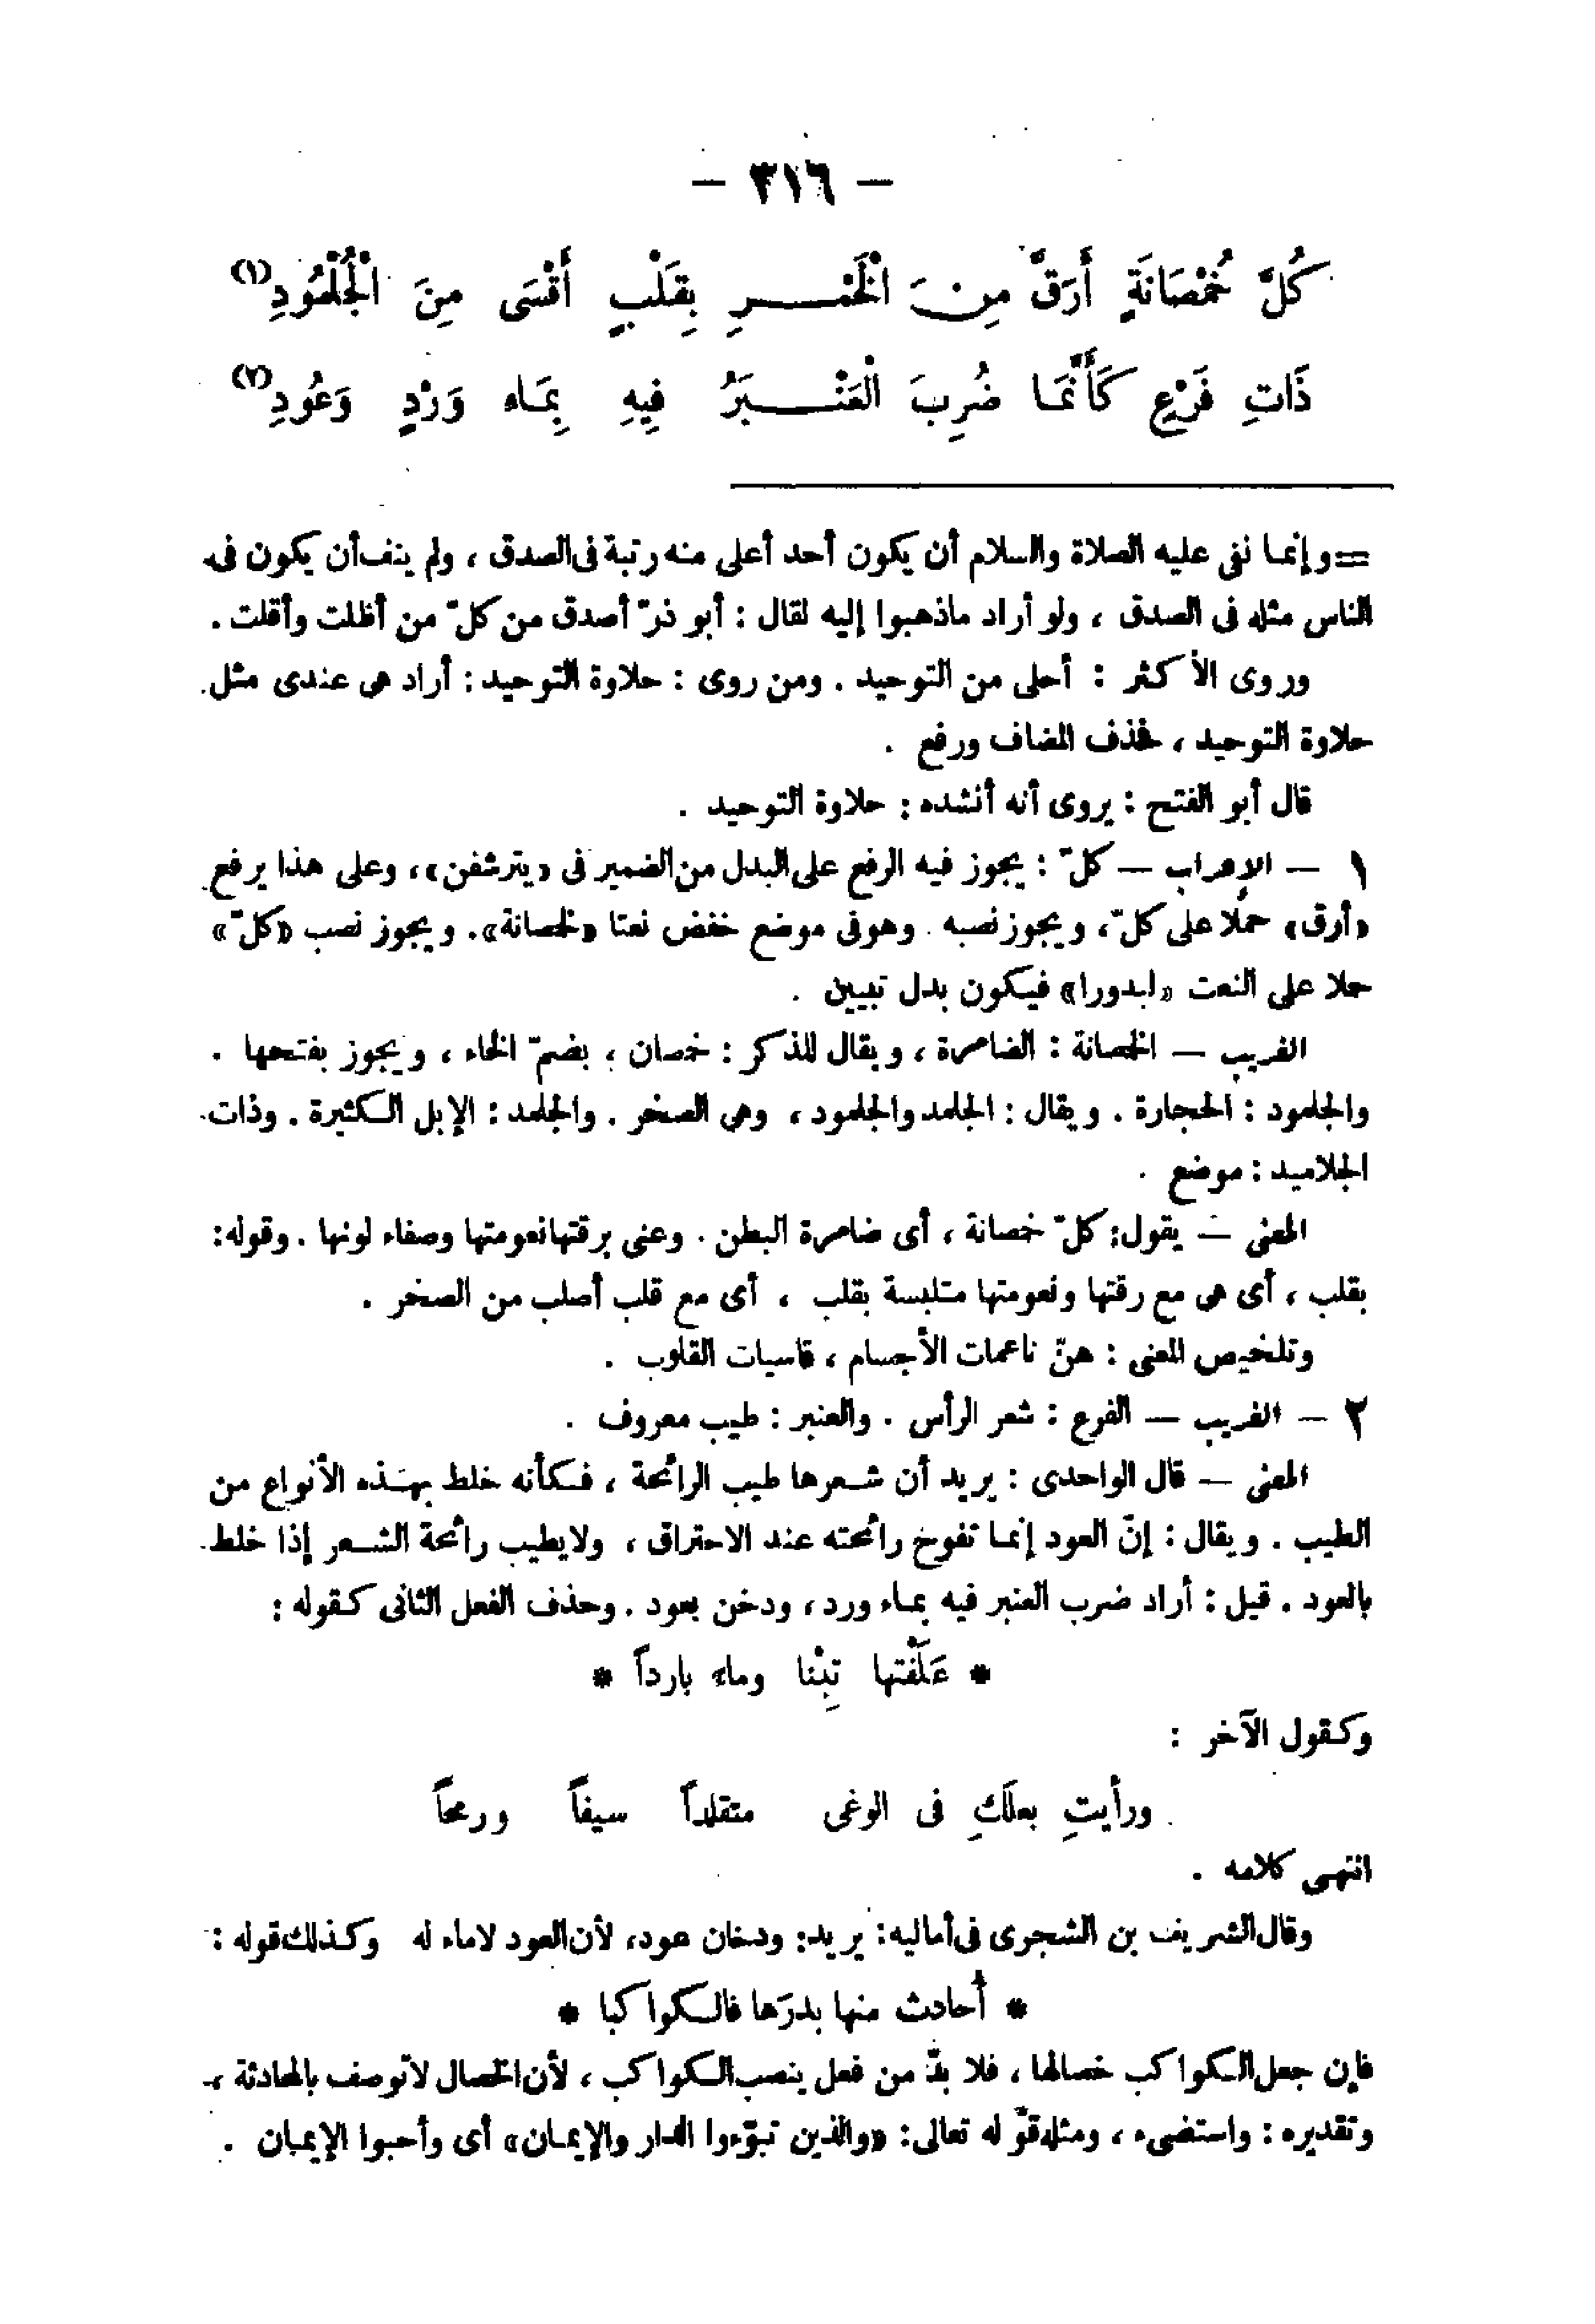 — ٣١٦ —
كُلُّ خُمْصَانَةٍ أَرَقُّ مِنَ الْخَمْـــرِ بِقَلْبٍ أَقْسَى مِنَ الْجُلْمُودِ (١)
ذَاتِ فَرْعٍ كَأَنَّمَا ضُرِبَ الْعَنْـــبَرُ فِيهِ بِمَاء وَرْدٍ وَعُودِ (٢)
=وإنما نفى عليه الصلاة والسلام أن يكون أحد أعلى منه رتبة فى الصدق ، ولم ينف أن يكون فى
الناس مثله فى الصدق ، ولو أراد ماذهبوا إليه لقال : أبو ذرّ أصدق من كلّ من أظلت وأقلت .
وروى الأكثر : أحلى من التوحيد . ومن روى : حلاوة التوحيد : أراد هى عندى مثل
حلاوة التوحيد ، فحذف المضاف ورفع .
قال أبو الفتح : يروى أنه أنشده : حلاوة التوحيد .
١ — الإعراب — كلّ : يجوز فيه الرفع على البدل من الضمير فى «يترشفن»، وعلى هذا يرفع
«أرق» حملا على كلّ، ويجوز نصبه . وهو فى موضع خفض نعتا «لخمصانة». ويجوز نصب «كلّ»
حملا على النعت «لبدورا» فيكون بدل تبيين .
الغريب — الخمصانة : الضامرة ، ويقال للمذكر : خمصان ؛ بضمّ الخاء ، ويجوز بفتحها .
والجلمود : الحجارة . ويقال : الجلمد والجلمود ، وهى الصخر . والجلمد : الإبل الكثيرة . وذات
الجلاميد : موضع .
المعنى — يقول: كلّ خمصانة ، أى ضامرة البطن . وعنى برقتها نعومتها وصفاء لونها . وقوله:
بقلب ، أى هى مع رقتها ونعومتها متلبسة بقلب ، أى مع قلب أصلب من الصخر .
وتلخيص المعنى : هنّ ناعمات الأجسام ، قاسيات القلوب .
٢ — الغريب — الفرع : شعر الرأس . والعنبر : طيب معروف .
المعنى — قال الواحدى : يريد أن شعرها طيب الرائحة ، فكأنه خلط بهذه الأنواع من
الطيب . ويقال : إنّ العود إنما تفوح رائحته عند الاحتراق ، ولا يطيب رائحة الشعر إذا خلط
بالعود . قيل : أراد ضرب العنبر فيه بماء ورد ، ودخن بعود . وحذف الفعل الثانى كقوله :
* عَلَفْتها تِبْنا وماء بارداً *
وكقول الآخر :
ورأيتِ بعلَكِ فى الوغى متقلداً سيفاً ورمحاً
انتهى كلامه .
وقال الشريف بن الشجرى فى أماليه: يريد: ودخان عود، لأن العود لاماء له وكذلك قوله :
* أُحادث منها بدرَها فالكواكبا *
فإن جعل الكواكب خصالها ، فلا بدّ من فعل ينصب الكواكب ، لأن الخصال لاتوصف بالمحادثة ،
وتقديره : واستضىء ، ومثله قوله تعالى: «والذين تبوّءوا الدار والإيمان» أى وأحبوا الإيمان .